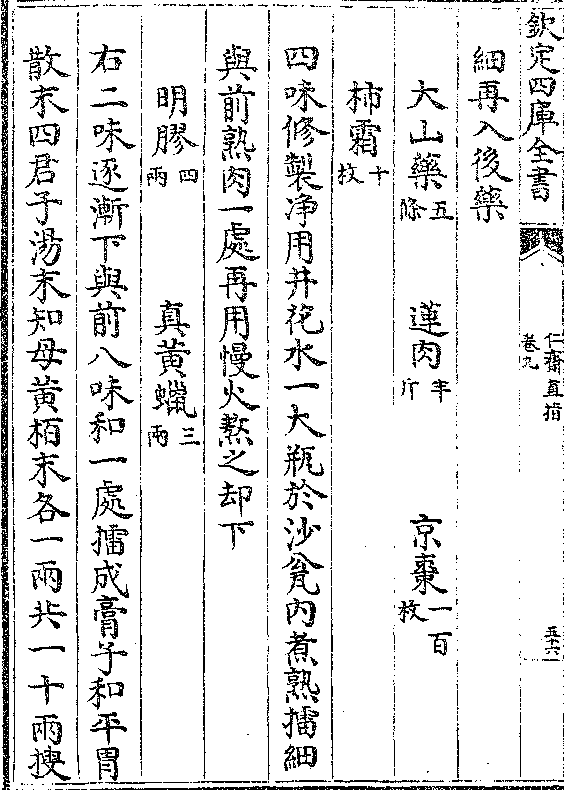 欽定四庫全書
仁齋直指
卷九
五十六
細再入後藥
大山藥五條 蓮肉半斤 京棗一百枚
柿霜十枚
四味修製净用井花水一大瓶於沙瓮内煮熟擂細
與前熟肉一處再用慢火熬之却下
明膠四兩 真黃蠟三兩
右二味逐漸下與前八味和一處擂成膏子和平胃
散末四君子湯末知母黃栢末各一兩共一十兩搜